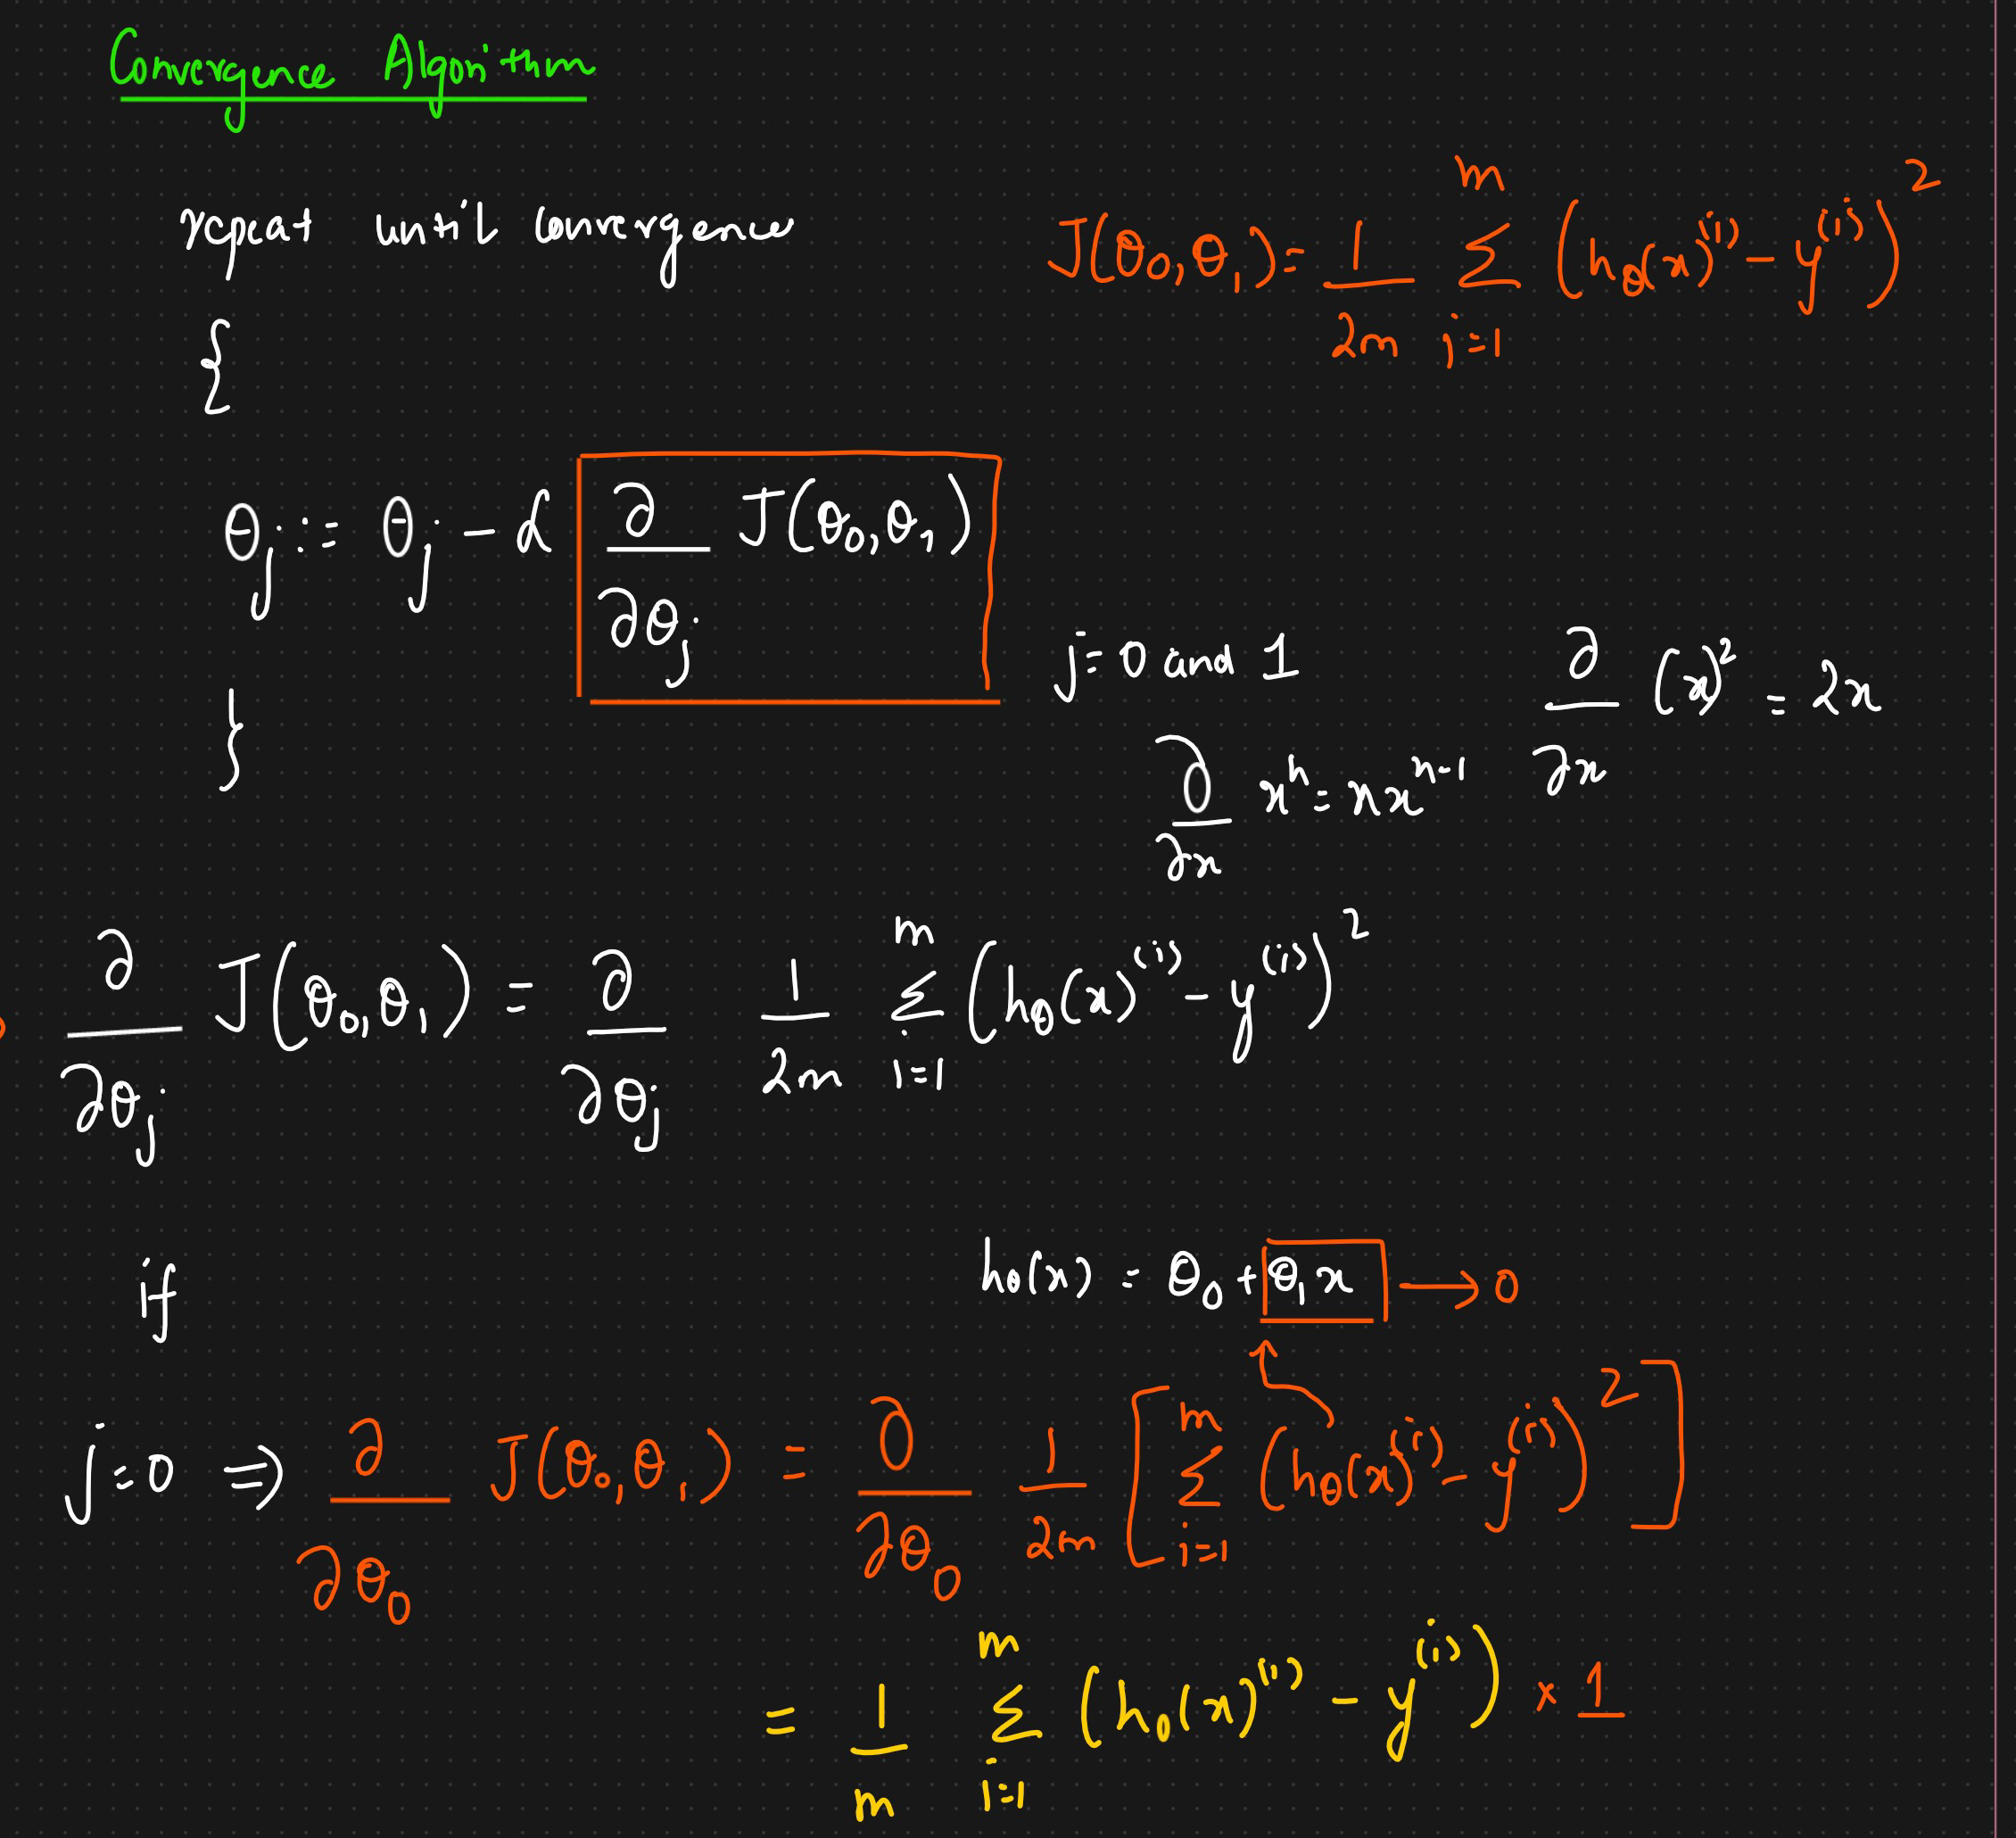 Convergence Algorithm
repeat until convergence
J(θ₀,θ₁) = 1/2m Σ_{i=1}^{m} (h_θ(x)^(i) − y^(i))²
{
θ_j := θ_j − α ∂/∂θ_j J(θ₀,θ₁)
j=0 and 1
∂/∂x (x)² = 2x
}
∂/∂x xⁿ = nx^{n-1}
∂/∂θ_j J(θ₀,θ₁) = ∂/∂θ_j 1/2m Σ_{i=1}^{m} (h_θ(x)^(i) − y^(i))²
if
h_θ(x) = θ₀ + θ₁x → 0
j=0 ⇒ ∂/∂θ₀ J(θ₀,θ₁) = ∂/∂θ₀ 1/2m [Σ_{i=1}^{m} (h_θ(x)^(i) − y^(i))²]
= 1/m Σ_{i=1}^{m} (h_θ(x)^(i) − y^(i)) × 1